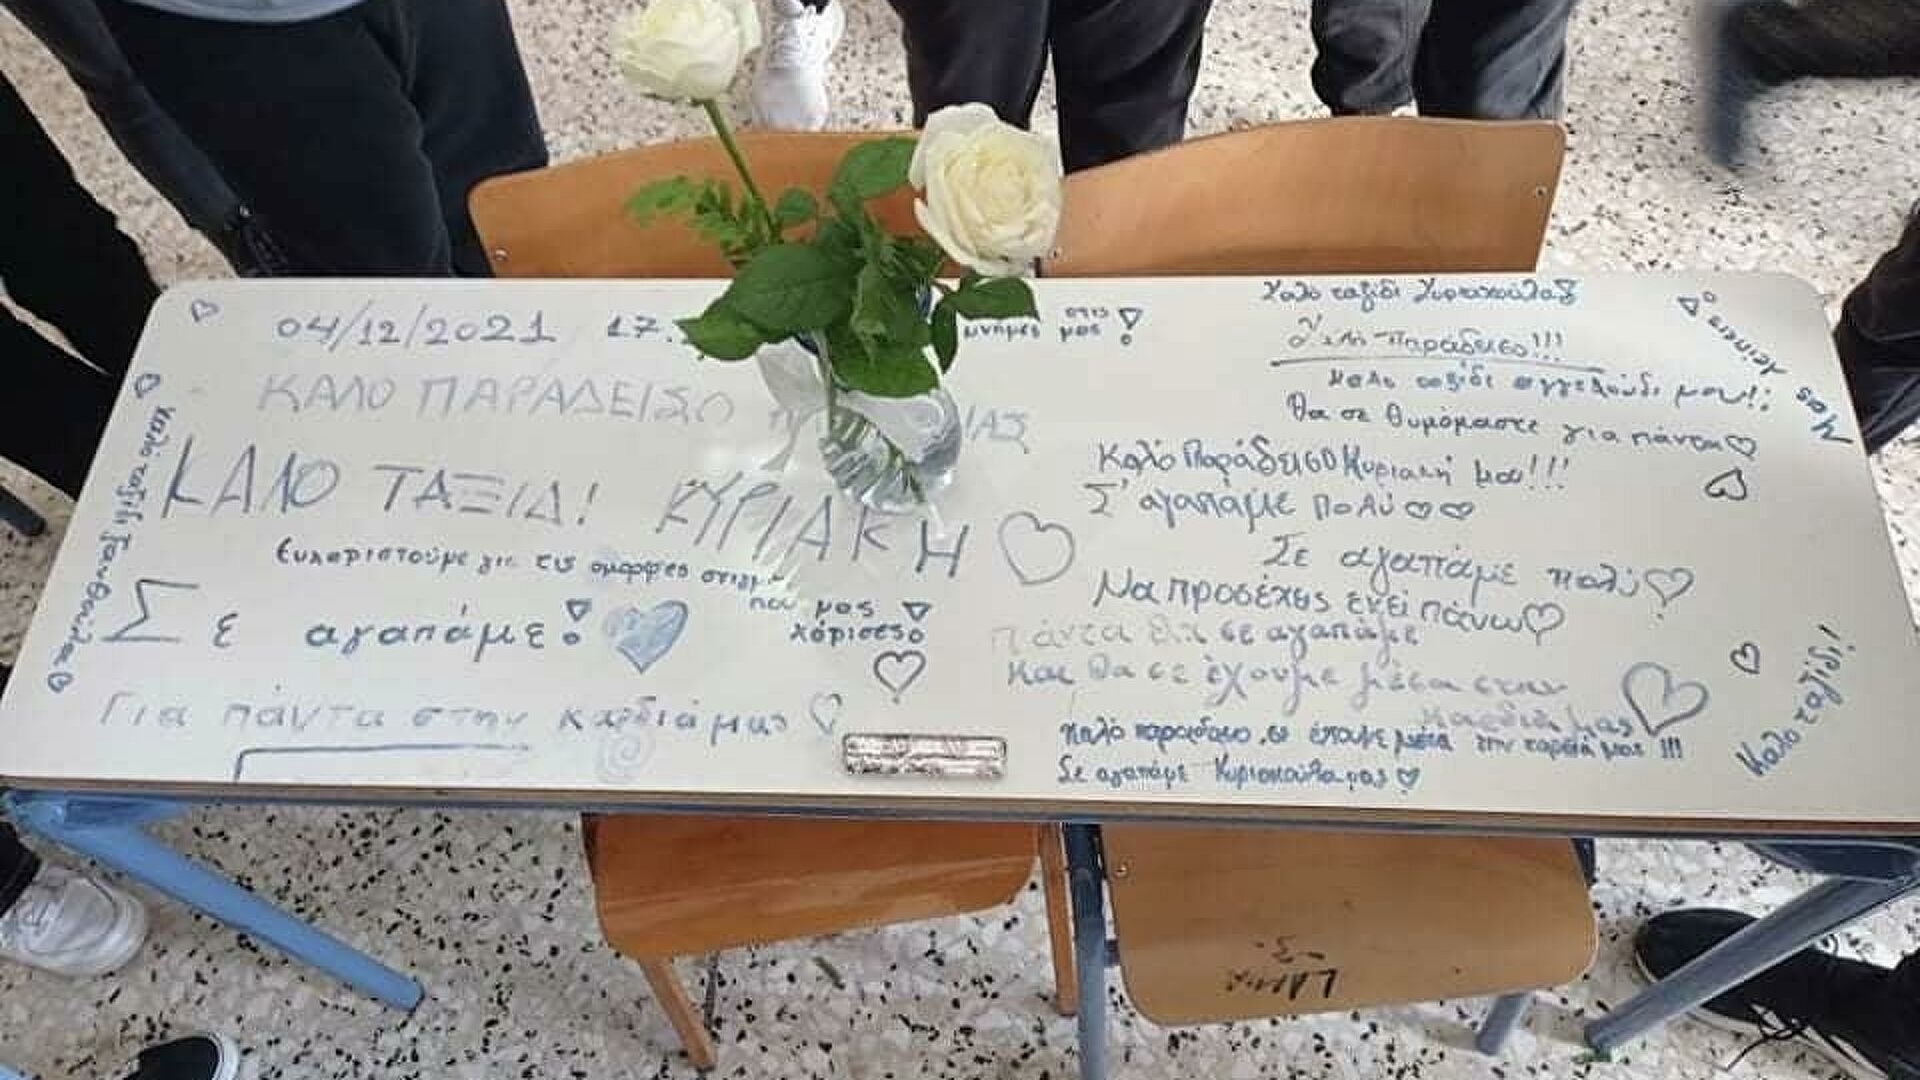 04/12/2021 17.
ΚΑΛΟ ΠΑΡΑΔΕΙΣΟ ΜΑΣ
ΚΑΛΟ ΤΑΞΙΔΙ ΚΥΡΙΑΚΗ
Ευχαριστούμε για τις όμορφες στιγμ
που μας
χάρισες
Σε αγαπάμε!
Για πάντα στην καρδιά μας
στις
μνήμες μας!
Καλό ταξίδι Κυριακούλα
Παράδεισο!!!
Καλό ταξίδι αγγελούδι μου!!
Θα σε θυμόμαστε για πάντα
Καλό Παράδεισο Κυριακή μου!!!
Σ' αγαπάμε πολύ
Σε αγαπάμε πολύ
Να προσέχεις εκεί πάνω
Πάντα θα σε αγαπάμε
και θα σε έχουμε μέσα στην
καρδιά μας
Καλό παράδεισο, σε έχουμε μέσα στην καρδιά μας!!!
Σε αγαπάμε Κυριακούλα μας
Μας λείπεις
Καλο ταξίδι!
Καλό ταξίδι Ξανθούλα